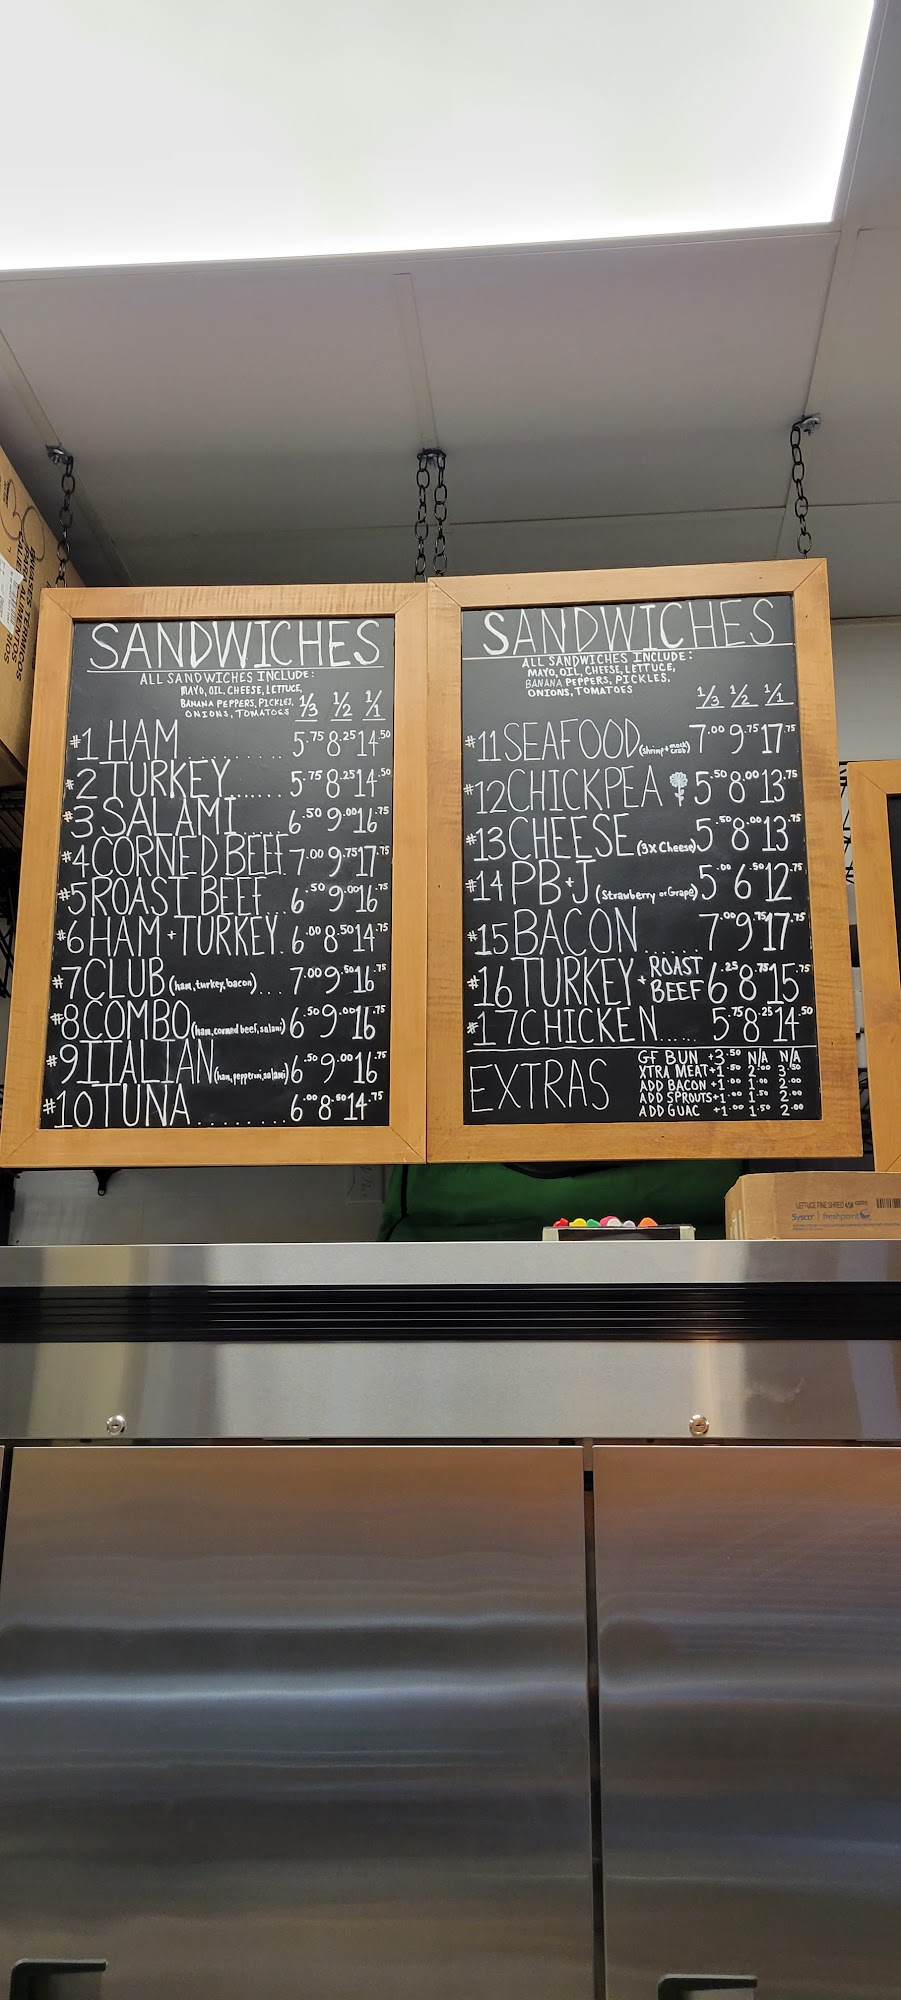 SANDWICHES
ALL SANDWICHES INCLUDE:
MAYO, OIL, CHEESE, LETTUCE,
BANANA PEPPERS, PICKLES,
ONIONS, TOMATOES 1/3 1/2 1/1
#1 HAM 5.75 8.25 14.50
#2 TURKEY...... 5.75 8.25 14.50
#3 SALAMI.... 6.50 9.00 16.75
#4 CORNED BEEF. 7.00 9.75 17.75
#5 ROAST BEEF.. 6.50 9.00 16.75
#6 HAM + TURKEY. 6.00 8.50 14.75
#7 CLUB (ham, turkey, bacon).... 7.00 9.50 16.75
#8 COMBO (ham, corned beef, salami) 6.50 9.00 16.75
#9 ITALIAN (ham, pepperoni, salami) 6.50 9.00 16.75
#10 TUNA ........ 6.00 8.50 14.75
SANDWICHES
ALL SANDWICHES INCLUDE:
MAYO, OIL, CHEESE, LETTUCE,
BANANA PEPPERS, PICKLES,
ONIONS, TOMATOES
1/3 1/2 1/1
#11 SEAFOOD (shrimp + mock crab) 7.00 9.75 17.75
#12 CHICKPEA 5.50 8.00 13.75
#13 CHEESE (3x Cheese) 5.50 8.00 13.75
#14 PB+J (Strawberry or Grape) 5.00 6.50 12.75
#15 BACON...... 7.00 9.75 17.75
#16 TURKEY + ROAST BEEF 6.25 8.75 15.75
#17 CHICKEN..... 5.75 8.25 14.50
EXTRAS
GF BUN +3.50 N/A N/A
XTRA MEAT +1.50 2.00 3.50
ADD BACON +1.00 1.00 2.00
ADD SPROUTS +1.00 1.50 2.00
ADD GUAC +1.00 1.50 2.00
LETTUCE FINE SHRED
Sysco | freshpoint